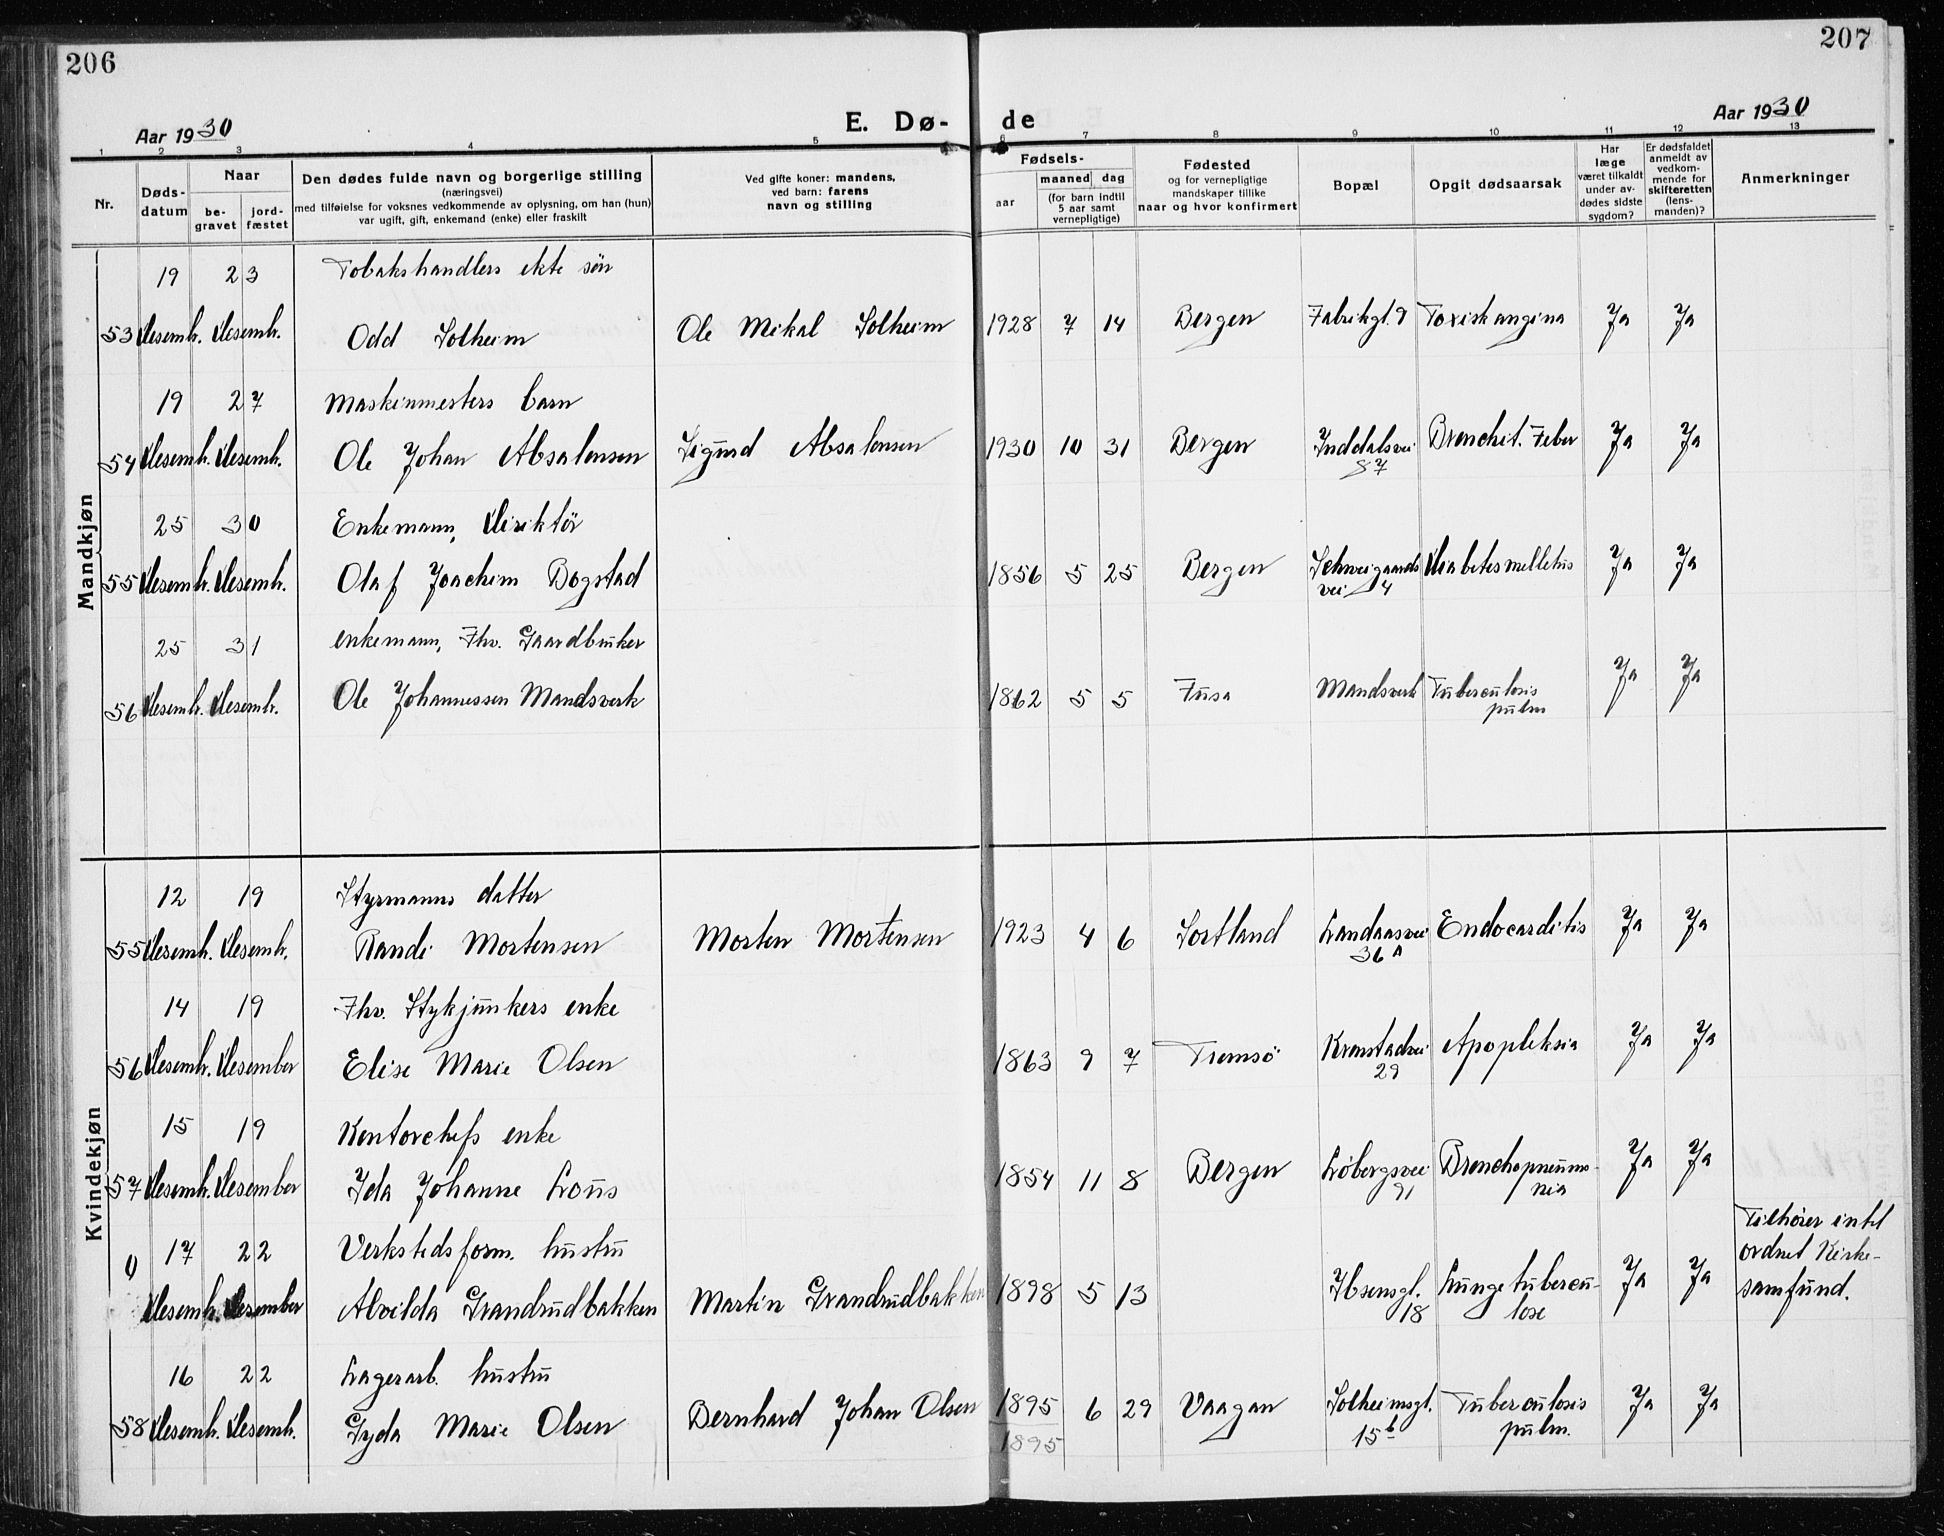 206
207
Aar 1930
E. Dø-
de
Aar 1930
1 2 3 4 5 6 7 8 9 10 11 12 13
Nr.
Døds-
datum
Naar
be-
gravet
jord-
fæstet
Den dødes fulde navn og borgerlige stilling
(næringsvei)
med tilføielse for voksnes vedkommende av oplysning, om han (hun)
var ugift, gift, enkemand (enke) eller fraskilt
Ved gifte koner: mandens,
ved barn: farens
navn og stilling
Fødsels-
aar
maaned
dag
(for barn indtil
5 aar samt
vernepligtige)
Fødested
og for vernepligtige
mandskaper tillike
naar og hvor konfirmert
Bopæl
Opgit dødsaarsak
Har
læge
været tilkaldt
under av-
dødes sidste
sygdom?
Er dødsfaldet
anmeldt av
vedkom-
mende for
skifteretten
(lens-
manden)?
Anmerkninger
Mandkjøn
19 23 Tobakshandlers ekte søn
53 Desemb. Desemb. Odd Solheim Ole Mikal Solheim 1928 7 14 Bergen Fabrikgt. 9 Toxisk angina Ja Ja
19 27 Maskinmesters barn
54 Desemb. Desemb. Ole Johan Absalonsen Sigurd Absalonsen 1930 10 31 Bergen Inddalsvei Bronchit. Feber Ja Ja
87
25 30 Enkemann, Direktør
55 Desemb. Desemb. Olaf Joachim Bogstad 1856 5 25 Bergen Schweigaards Diabetes melletus Ja Ja
vei 4
25 31 enkemann, Fhv. Gaardbruker
56 Desemb. Desemb. Ole Johannessen Mandsverk 1862 5 5 Fusa Mandsverk Tuberculosis Ja Ja
pulm
Kvindekjøn
12 19 Styrmanns datter
55 Desemb. Desemb. Randi Mortensen Morten Mortensen 1923 4 6 Sortland Landaasvei Endocarditis Ja Ja
36 A
14 19 Fhv. Stykjunkers enke
56 Desemb. Desember Elise Marie Olsen 1863 9 7 Tromsø Kronstadvei Apopleksia Ja Ja
29
15 19 Kontorchefs enke
57 Desemb. Desember Ida Johanne Lous 1854 11 8 Bergen Løbergsvei Bronchopneumo- Ja Ja
91 nia
0 17 22 Verkstedsform. hustru
Desemb. Desember Alvilda Grandrudbakken Martin Grandrudbakken 1898 5 13 Ibsensgt. Lungetubercu- Ja Ja
18 lose
Tilhører intet
ordnet Kirke-
samfund.
16 22 Lagerarb. hustru
58 Desemb. Desemb. Gyda Marie Olsen Bernhard Johan Olsen 1895 6 29 Vaagan Solheimsgt. Tuberculosis Ja Ja
1895 15 b pulm.